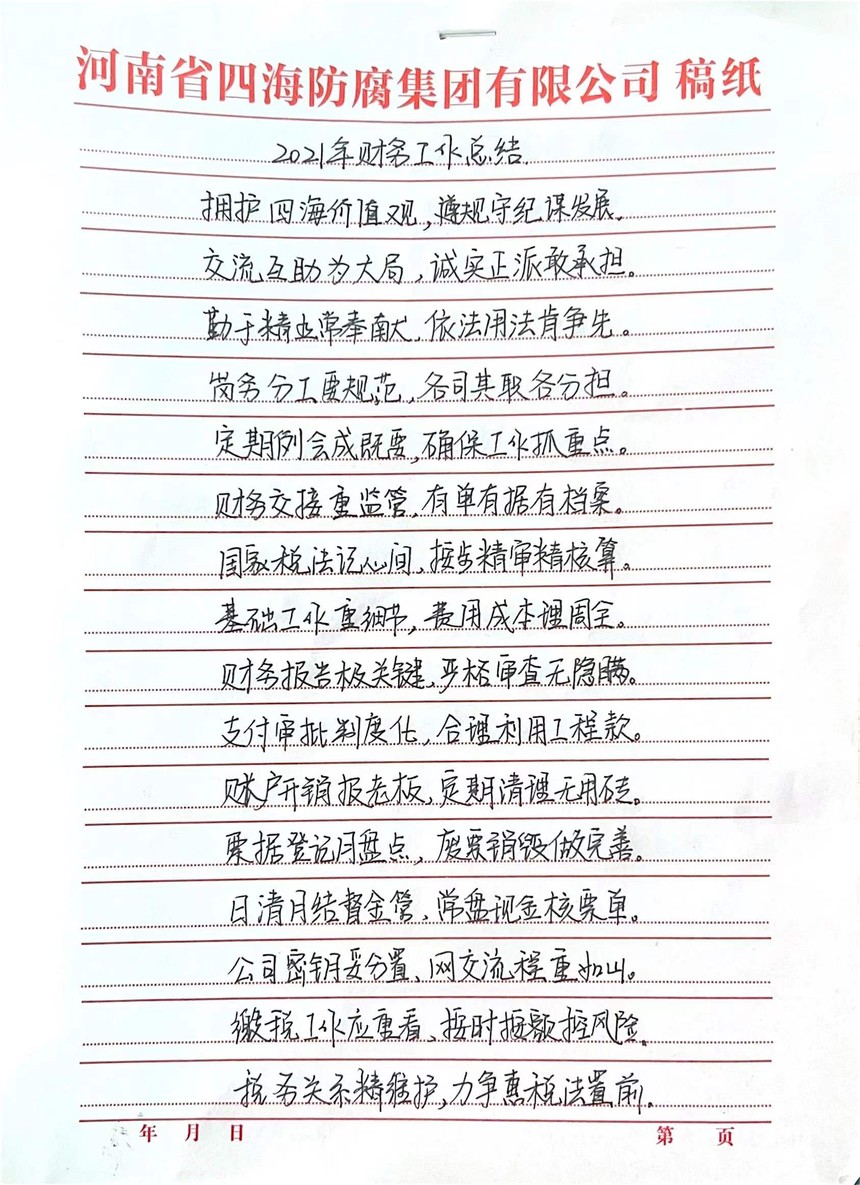 河南省四海防腐集团有限公司 稿纸
2021年财务工作总结
拥护四海价值观,遵规守纪谋发展。
交流互助为大局,诚实正派敢承担。
勤于精业常奉献,依法用法肯争先。
岗务分工要规范,各司其职各分担。
定期例会成既要,确保工作抓重点。
财务交接重监管,有单有据有档案。
国家税法记心间,按步精审精核算。
基础工作重细节,费用成本理周全。
财务报告极关键,严格审查无隐瞒。
支付审批制度化,合理利用工程款。
账户开销报老板,定期清理无用砖。
票据登记月盘点,废票销毁做完善。
日清月结督金管,常盘现金核票单。
公司密钥妥分置、网交流程重如山。
缴税工作应重看、按时按额控风险。
税务关系精维护,力争惠税法置前。
年 月 日
第 页